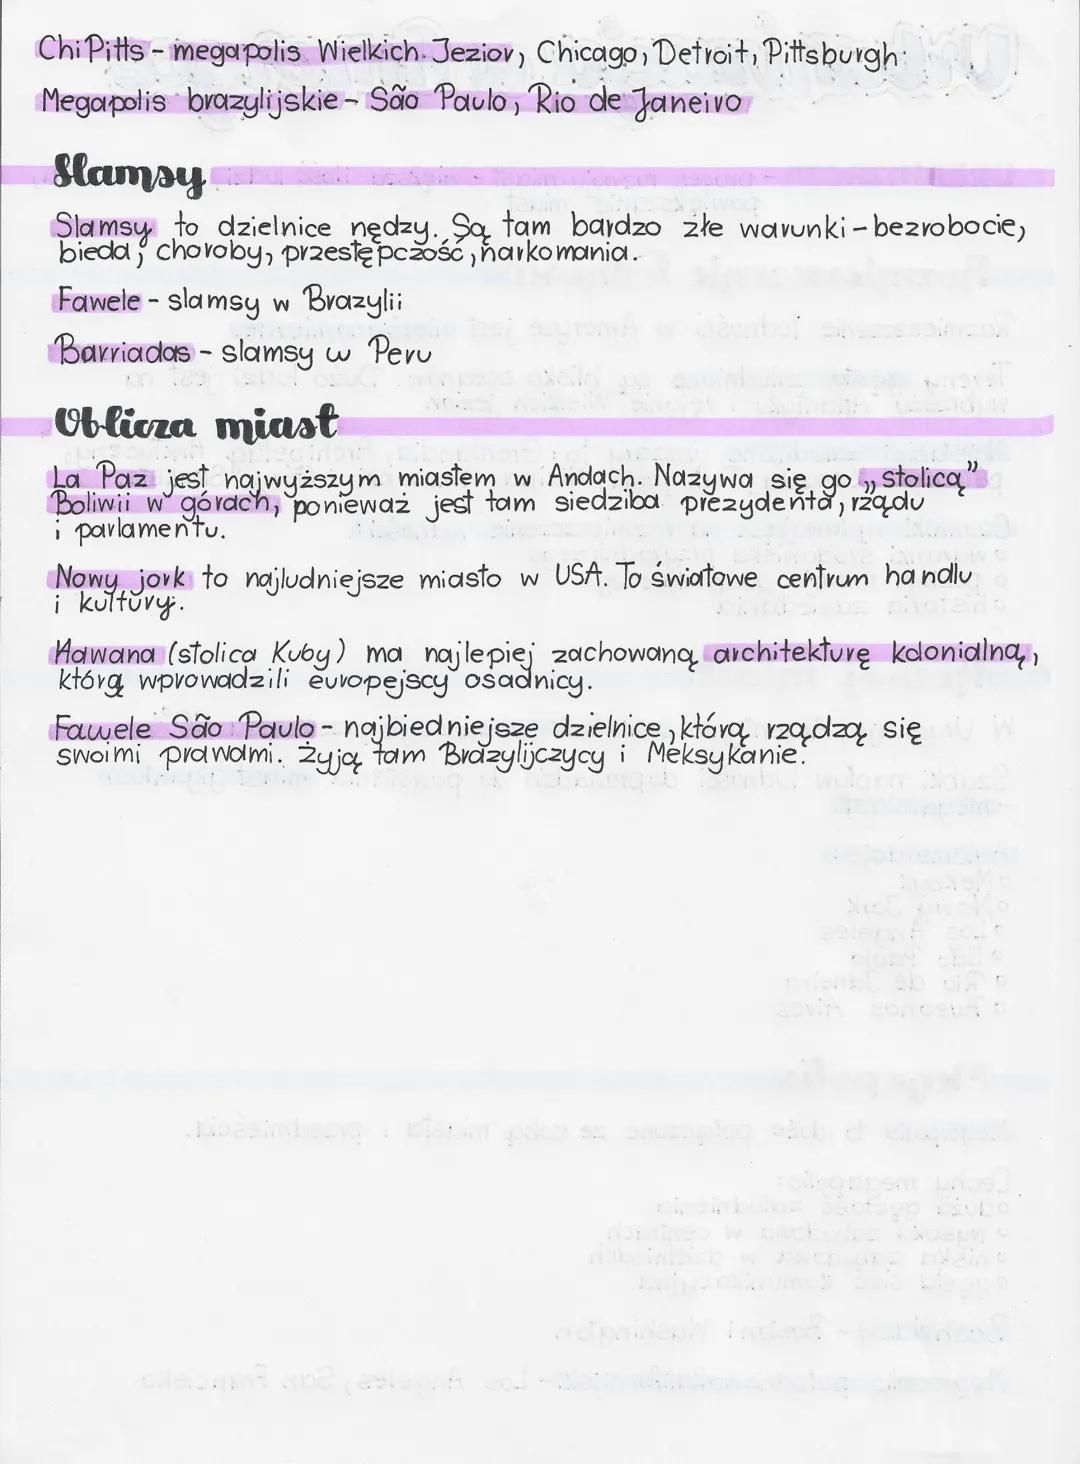 ChiPitts - megapolis Wielkich Jezior, Chicago, Detroit, Pittsburgh
Megapolis brazylijskie - São Paulo, Rio de Janeiro
Slamsy
Slamsy to dzielnice nędzy. Są tam bardzo złe warunki - bezrobocie,
bieda, choroby, przestępczość, narkomania.
Fawele - slamsy w Brazylii
Barriadas - slamsy w Peru
Oblicza miast
La Paz jest najwyższym miastem w Andach. Nazywa się go „stolicą”
Boliwii w górach, ponieważ jest tam siedziba prezydenta, rządu
i parlamentu.
Nowy jork to najludniejsze miasto w USA. To światowe centrum handlu
i kultury.
Hawana (stolica Kuby) ma najlepiej zachowaną architekturę kolonialną,
którą wprowadzili europejscy osadnicy.
Fawele São Paulo - najbiedniejsze dzielnice, którą rządzą się
swoimi prawami. Żyją tam Brazylijczycy i Meksykanie.